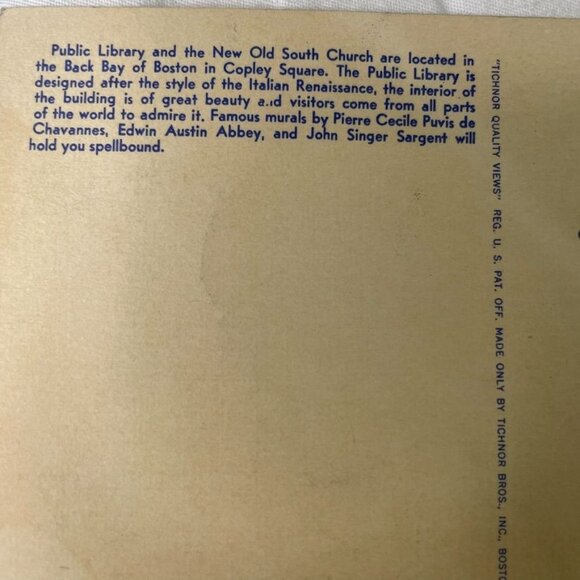 Public Library and the New Old South Church are located in
the Back Bay of Boston in Copley Square. The Public Library is
designed after the style of the Italian Renaissance, the interior of
the building is of great beauty a.id visitors come from all parts
of the world to admire it. Famous murals by Pierre Cecile Puvis de
Chavannes, Edwin Austin Abbey, and John Singer Sargent will
hold you spellbound.
"TICHNOR QUALITY VIEWS" REG. U. S. PAT. OFF. MADE ONLY BY TICHNOR BROS., INC., BOSTO